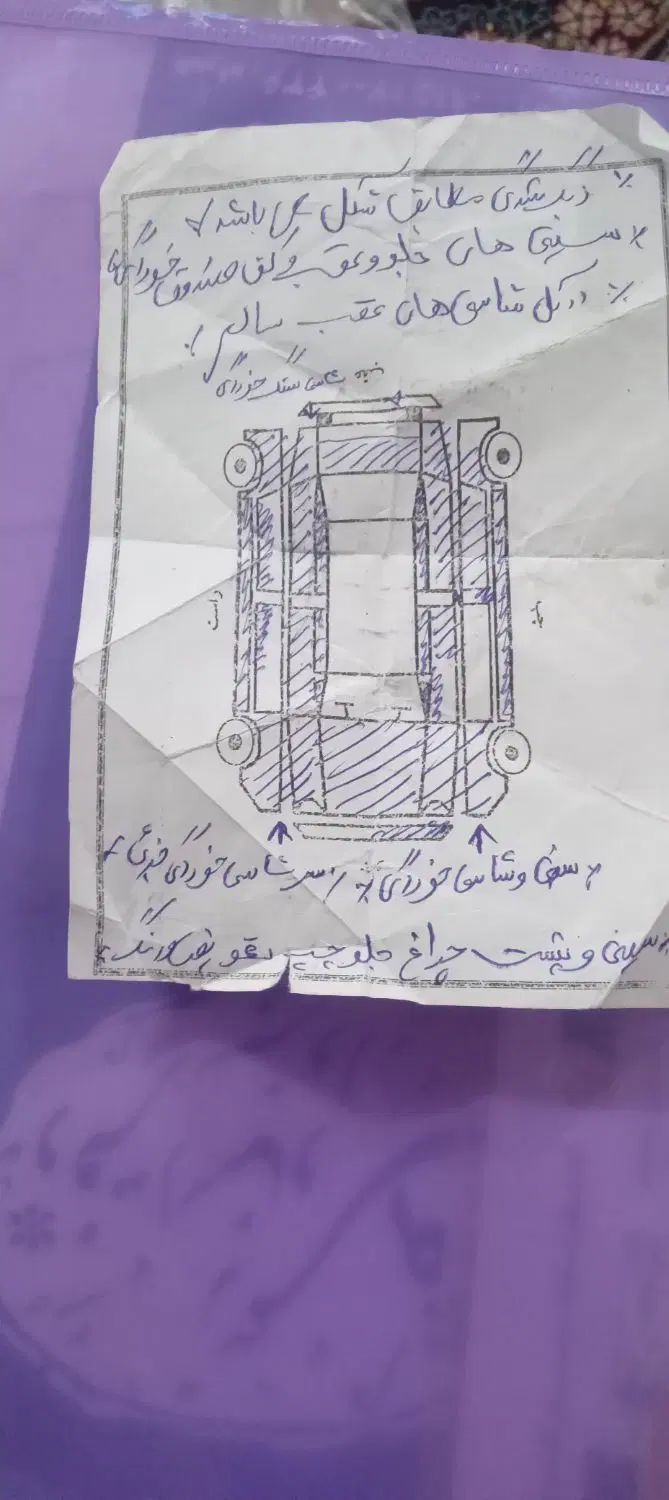 ٪ رنگ شدگی مطابق شکل می باشد
٪ سینی های جلو و عقب و کف صندوق خوردگی
٪ در کل شاسی های عقب سالم
شاسی سنگ خوردگی
راست
٪ سینی و شاسی خوردگی ٪ سر شاسی خوردگی جزئی
٪ سینی و پشت چراغ جلو چپ